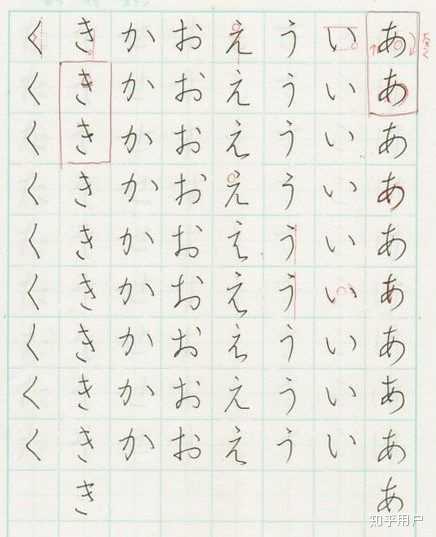 ああああああああああ
いいいいいいいいい
ううううううううう
えええええええええ
おおおおおおおおお
かかかかかかかかか
きききききききききき
くくくくくくくくく
知乎用户